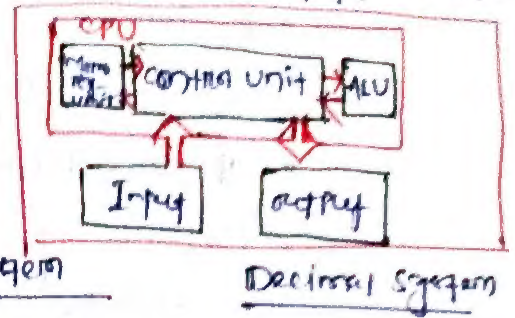 CPU
Memo
ry
unit
control unit
ALU
Input
output
Decimal system